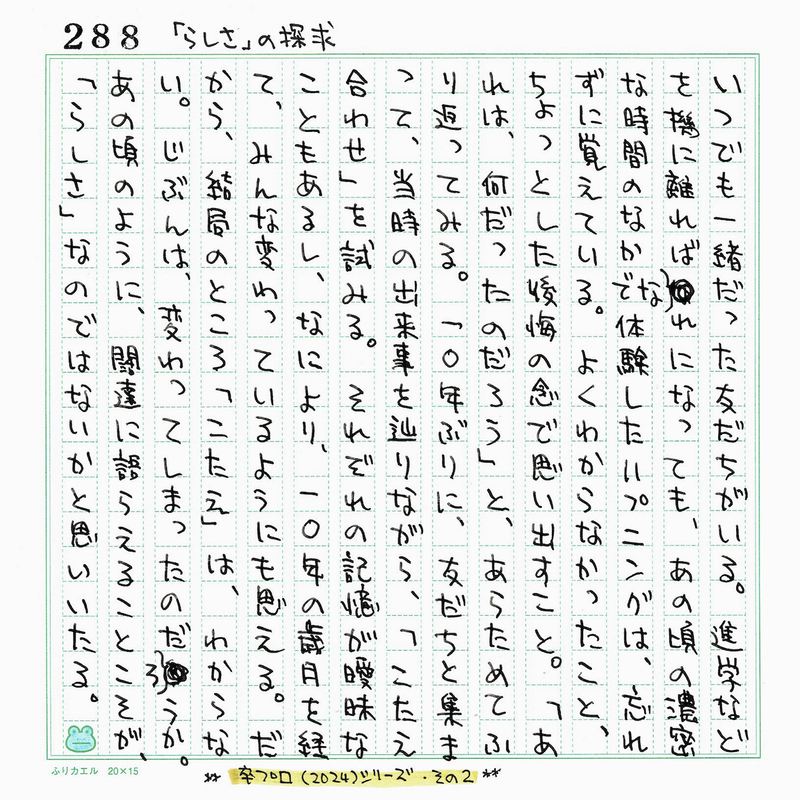 288 「らしさ」の探求
いつでも一緒だった友だちがいる。進学など
を機に離ればなれになっても、あの頃の濃密
な時間のなかで体験したハプニングは、忘れ
ずに覚えている。よくわからなかったこと、
ちょっとした後悔の念で思い出すこと。「あ
れは、何だったのだろう」と、あらためてふ
り返ってみる。一〇年ぶりに、友だちと集ま
って、当時の出来事を辿りながら、「こたえ
合わせ」を試みる。それぞれの記憶が曖昧な
こともあるし、なにより、一〇年の歳月を経
て、みんな変わっているようにも思える。だ
から、結局のところ「こたえ」は、わからな
い。じぶんは、変わってしまったのだろうか。
あの頃のように、闊達に語らえることこそが、
「らしさ」なのではないかと思いいたる。
ふりカエル 20×15
** 卒プロ(2024)シリーズ・その2 **